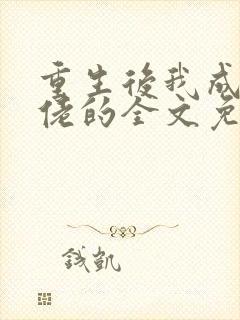 重生後我成
佬的全文免
钱凯